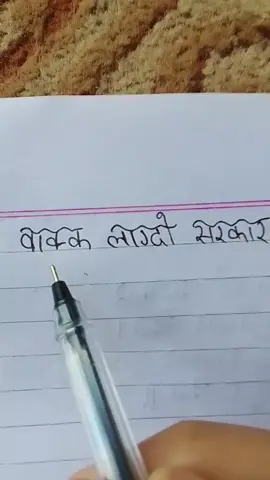 वाक्क लाग्दो सरकार